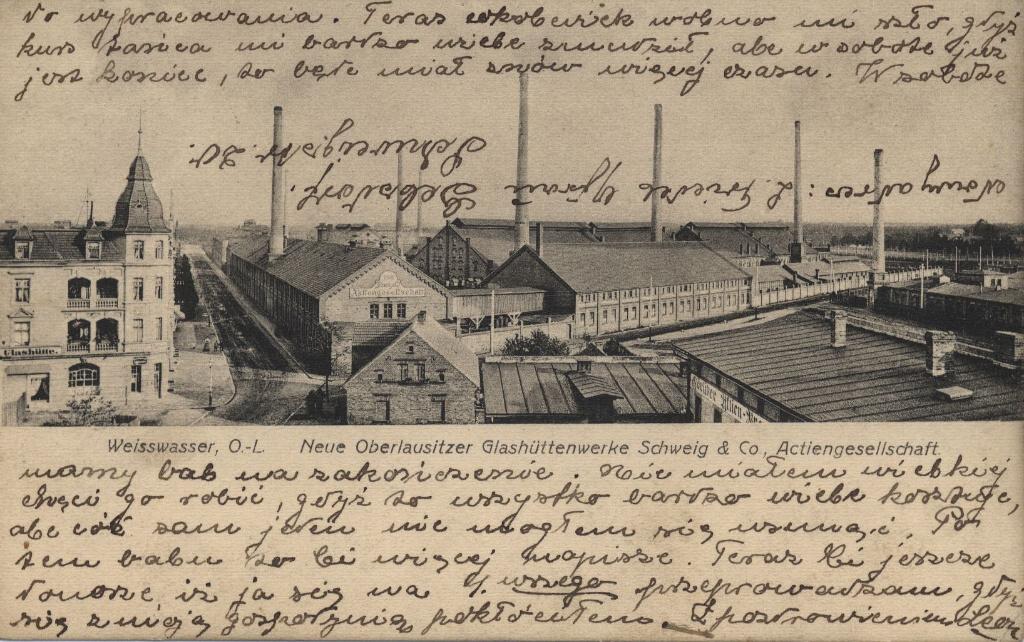 do wypracowania. Teraz cokolwiek wolno mi szło, gdyż
kurs tańca mi bardzo wiele zmudził, ale w sobotę już
jest koniec, to będę miał znów więcej czasu. W sobotę
Nowy adres:
Schweigstr. 20.
Glashütte.
Actiengesellschaft
Weisswasser, O.-L. Neue Oberlausitzer Glashüttenwerke Schweig & Co, Actiengesellschaft.
mamy bal na zakończenie. Nie miałem wielkiej
chęci go robić, gdyż to wszystko bardzo wiele kosztuje,
ale coż sam jeden nie mogłem się usunąć. Po
tem balu to Ci więcej napiszę. Teraz Ci jeszcze
donoszę, iż ja się na 1. wszego przeprowadzam, gdyż
się z moją gospodynią pokłóciłem. Z pozdrowieniem Leon